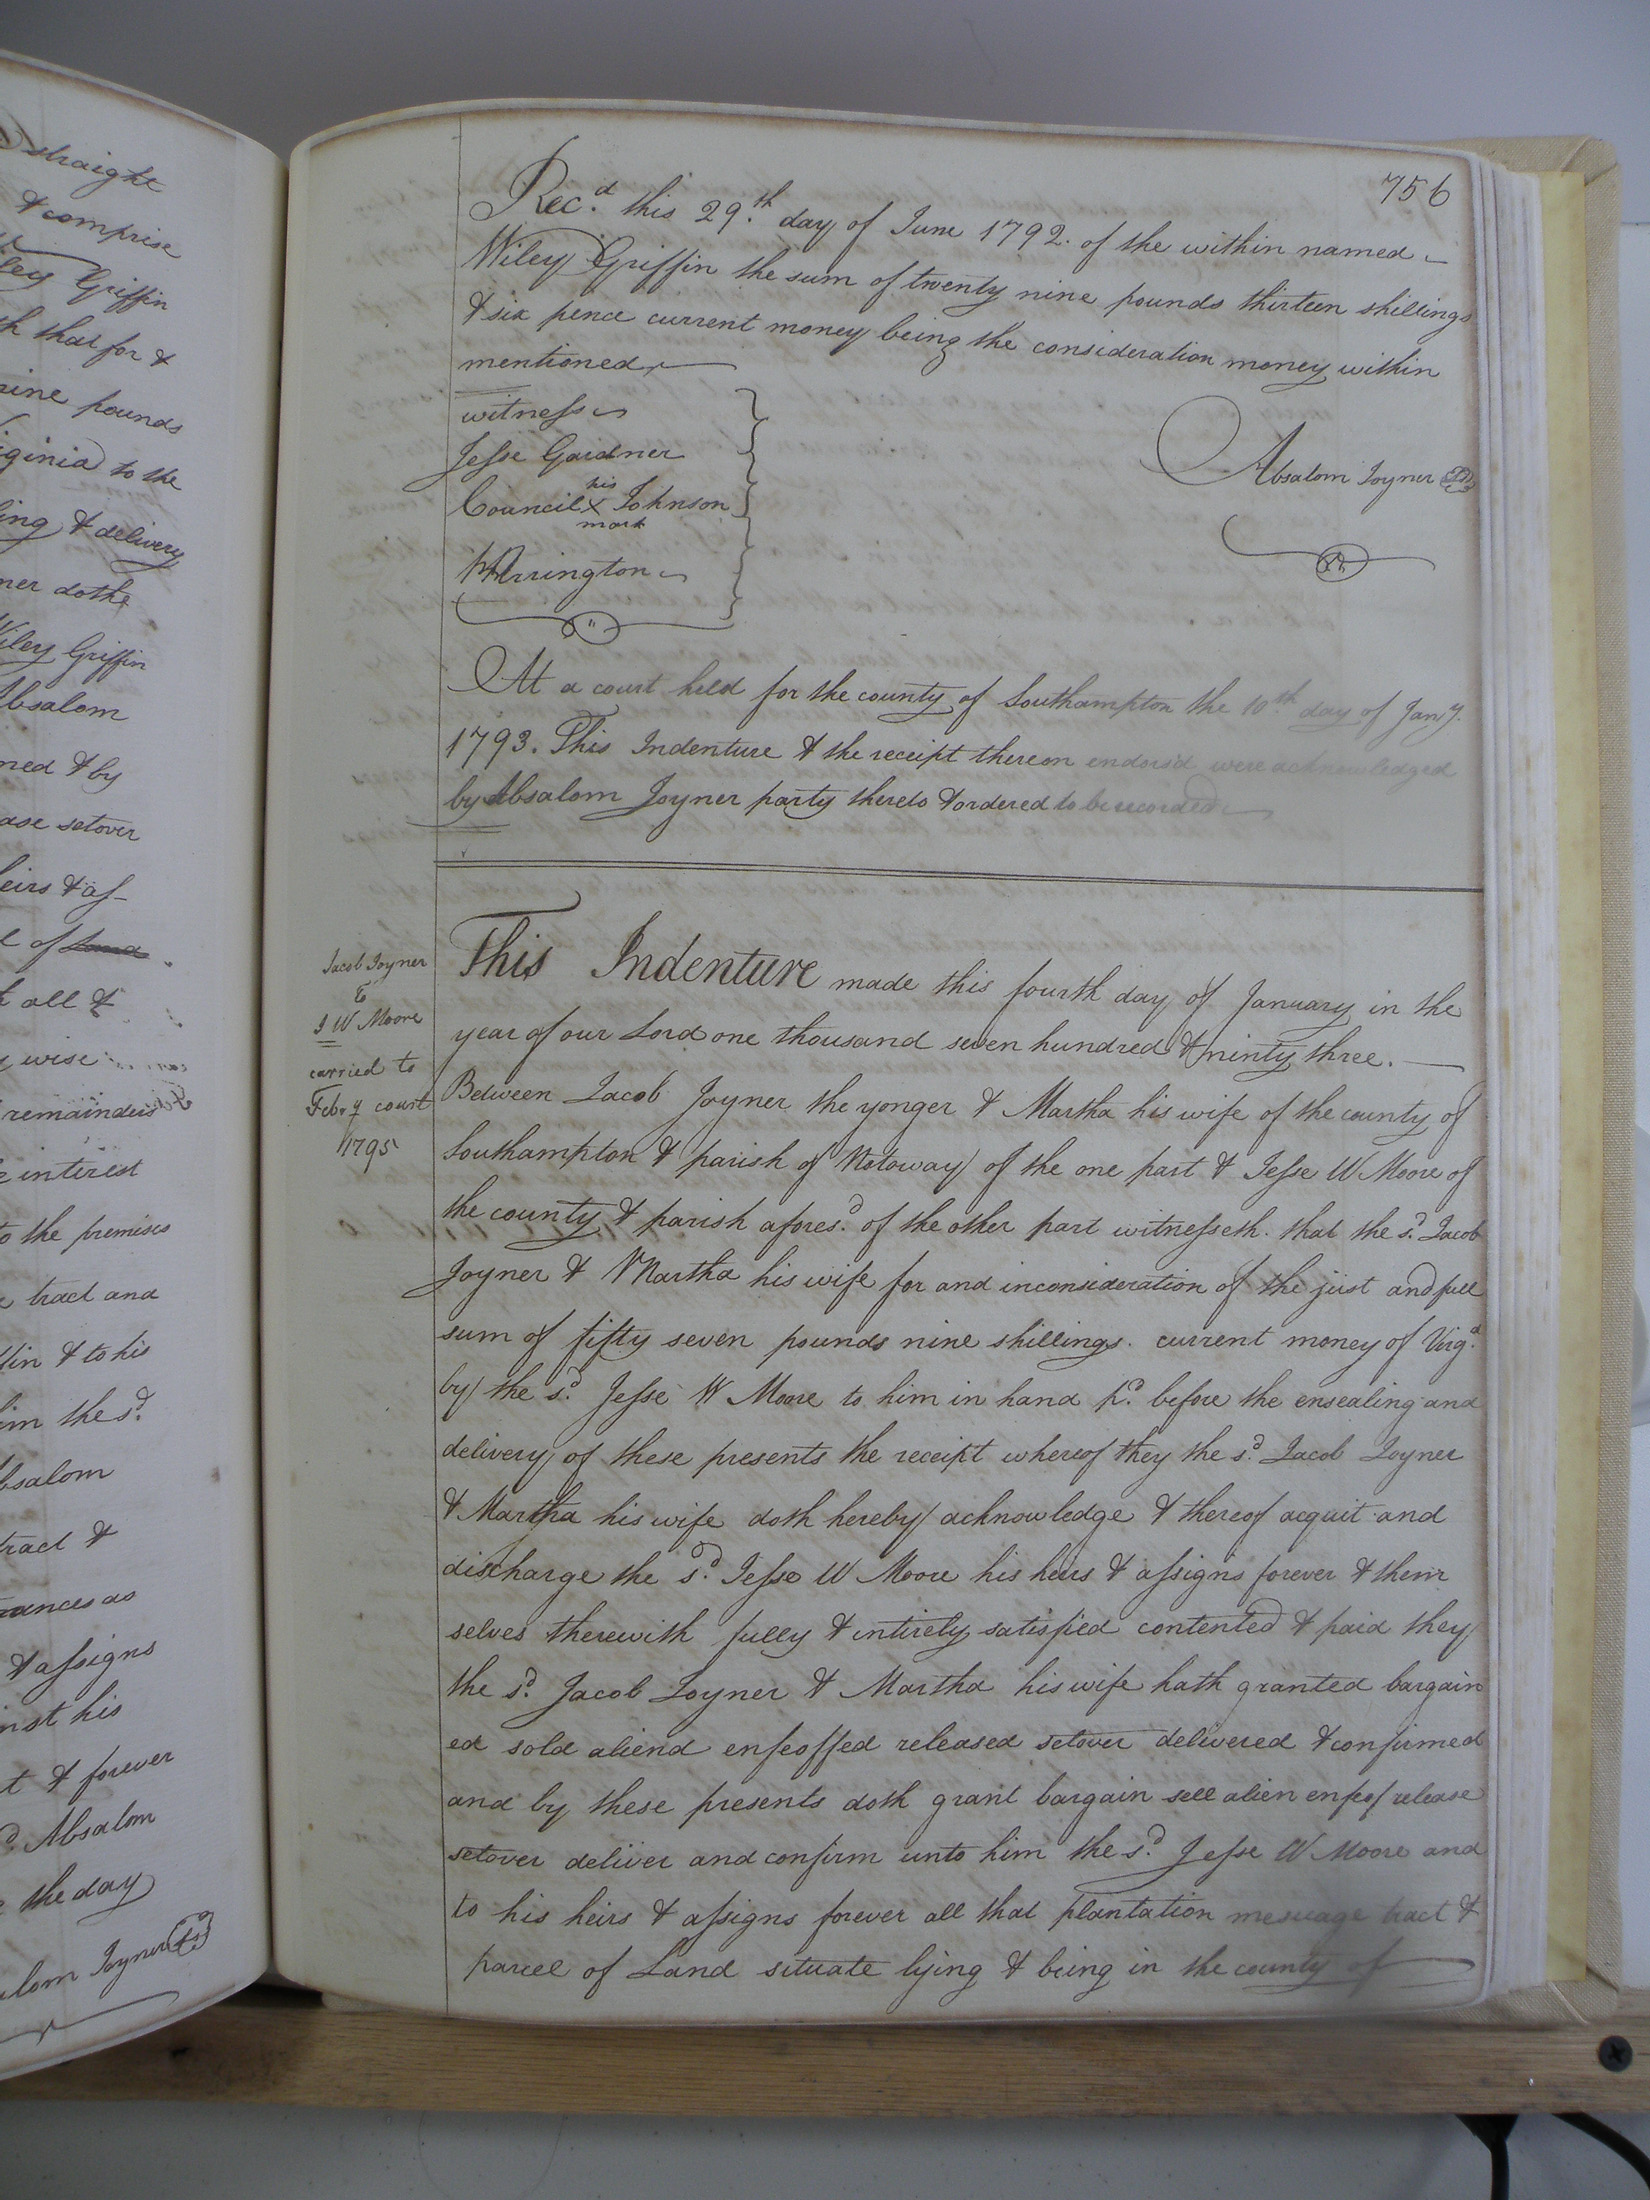 straight
& comprise
ley Griffin
th that for &
nine pounds
iginia to the
ing & delivery
ner doth
Wiley Griffin
Absalom
med & by
ase setover
heirs & ass-
e of
t all &
y wise
remainders
interest
to the premises
tract and
fin & to his
him the sd.
bsalom
tract &
rances as
& assigns
inst his
t & forever
d. Absalom
the day
alom Joyner (LS)
756
Recd. this 29.th day of June 1792. of the within named
Wiley Griffin the sum of twenty nine pounds thirteen shillings
& six pence current money being the consideration money within
mentioned
witness
Jesse Gardner
his
Council X Johnson
mark
Absalom Joyner
Arrington
At a court held for the county of Southampton the 10th day of Jany.
1793. This Indenture & the receipt thereon endorsd were acknowledged
by Absalom Joyner party thereto & ordered to be recorded
Jacob Joyner
to
J W Moore
carried to
Feby court
1795
This Indenture made this fourth day of January in the
year of our Lord one thousand seven hundred & ninty three.
Between Jacob Joyner the yonger & Martha his wife of the county of
Southampton & parish of Notoway of the one part & Jesse W Moore of
the county & parish aforesd. of the other part witnesseth. that the sd. Jacob
Joyner & Martha his wife for and inconsideration of the just and full
sum of fifty seven pounds nine shillings. current money of Virga.
by the sd. Jesse W Moore to him in hand pd. before the ensealing and
delivery of these presents the receipt whereof they the sd. Jacob Joyner
& Martha his wife doth hereby acknowledge & thereof acquit and
discharge the sd. Jesse W Moore his heirs & assigns forever & them
selves therewith fully & intirely satisfied contented & paid they
the sd. Jacob Joyner & Martha his wife hath granted bargain
ed sold aliend enfeoffed released setover delivered & confirmed
and by these presents doth grant bargain sell alien enfeof release
setover deliver and confirm unto him the sd. Jesse W Moore and
to his heirs & assigns forever all that plantation mesuage tract &
parcel of Land situate lying & being in the county of